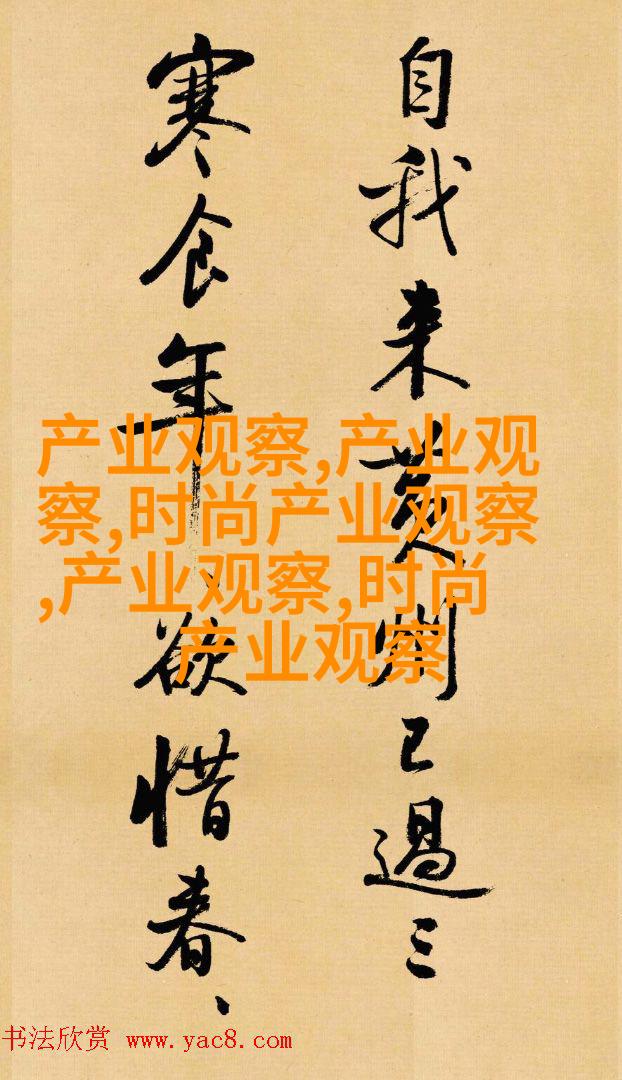 自我来黄州已過三
寒食年、欲惜春、
产业观察,产业观
察,时尚产业观察
,产业观察,时尚
产业观察
书法欣赏 www.yac8.com